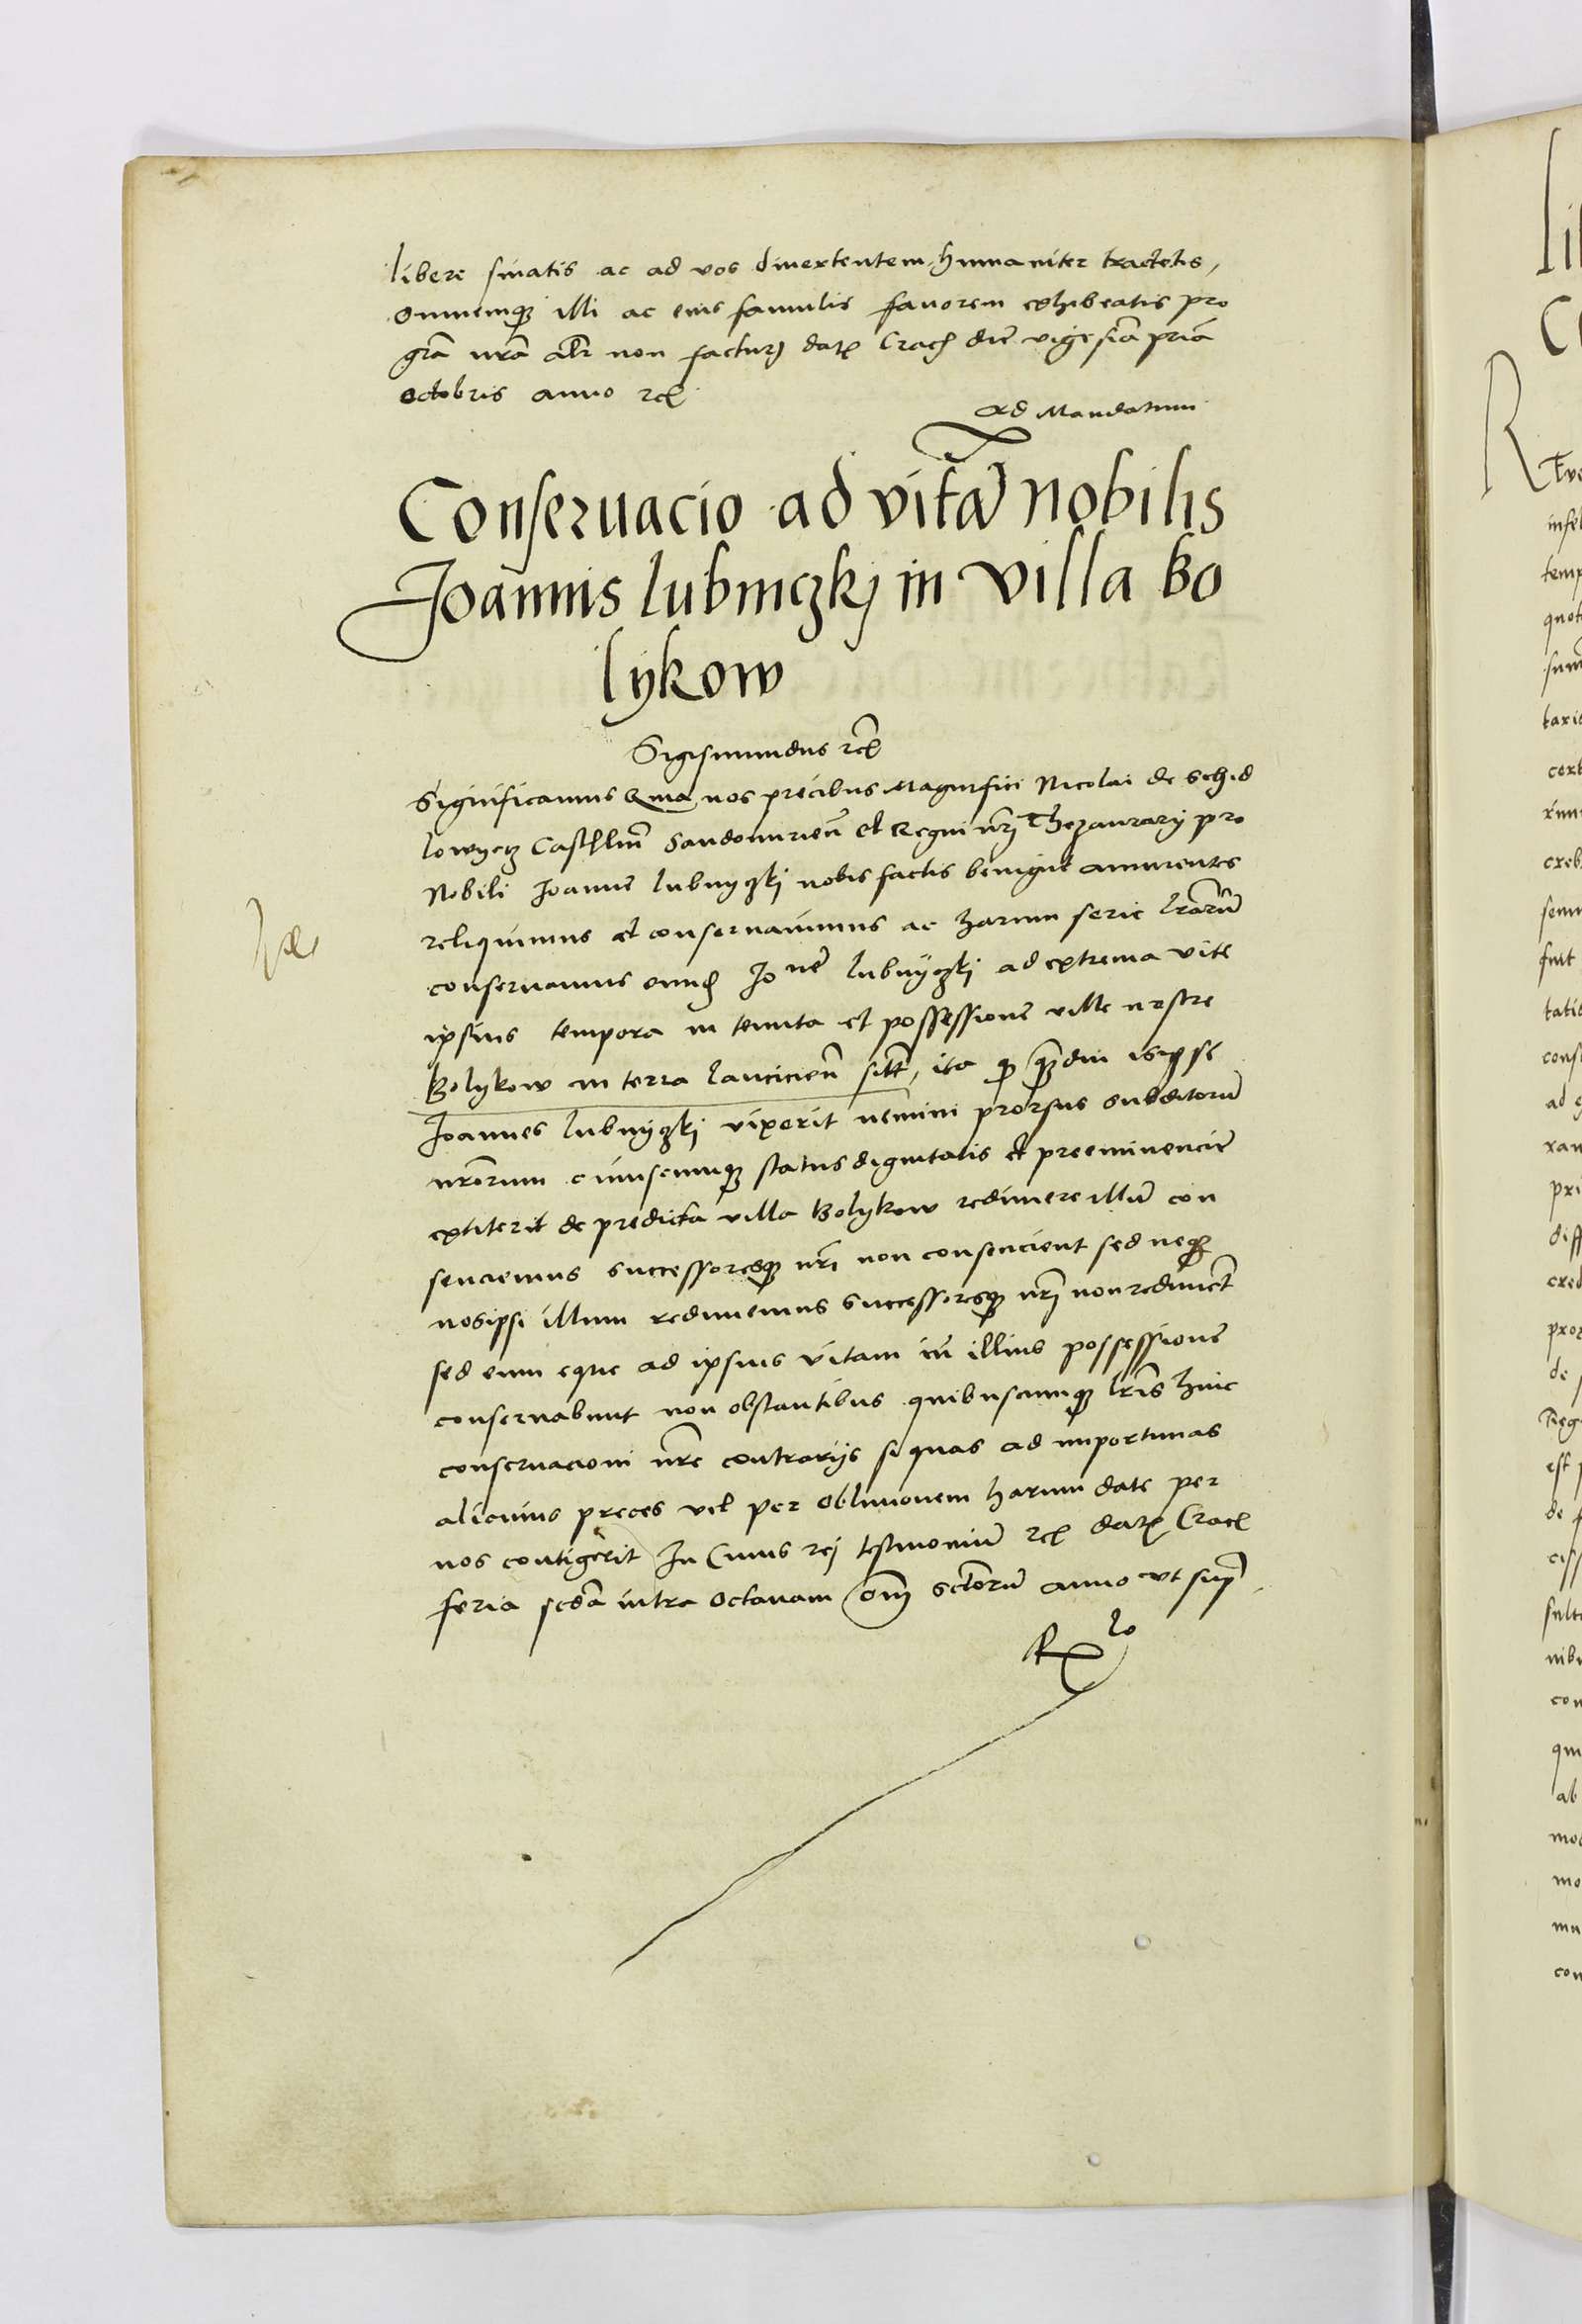 libere sinatis ac ad vos divertentem humaniter tractetis,
omnemq3 illi ac eius famulis favorem exhibeatis pro
grã nrã alr non factur) dat Crach die vigesiã priã
octobris anno rc
Ad Mandatum
Conservacio ad vitã nobilis
Joannis lubniczkj in villa bo
lykow
Sigismundus rc
Significamus Quia nos precibus Magnifici Nicolai de Schid
lowyetz Castelln̄ Sandomirien̄ et Regni nrj Thezaurarij pro
Nobili Joanne lubnyczkj nobis factis benigne annuentes
reliquimus et conservavimus ac harum serie lrarū
conservamus eund Jo nē lubnyczkj ad extrema vite
ipsius tempora in tenuta et possessione ville nostre
Bolykow in terra lancicien̄ sitē, ita q q3diu is ipse
Joannes lubnyczkj vixerit nemini prorsus subditorū
nrorum cuiuscunq3 status dignitatis et preeminencie
extiterit de predicta villa Bolykow redimere illū con
senciemus successoresq3 nrī non consencient sed neq3
nosipsi illum redimemus successoresq3 nrj non rediment
sed eum eque ad ipsius vitam in illius possessione
conservabunt non obstantibus quibuscunq3 lris huic
conservacioni nre contrarijs si quas ad importunas
alicuius preces vel per oblivionem harum date per
nos contigerit In Cuius rej testimoniū rc dat Crac
feria scdã intra octavam om̄ sctorū anno vt sup